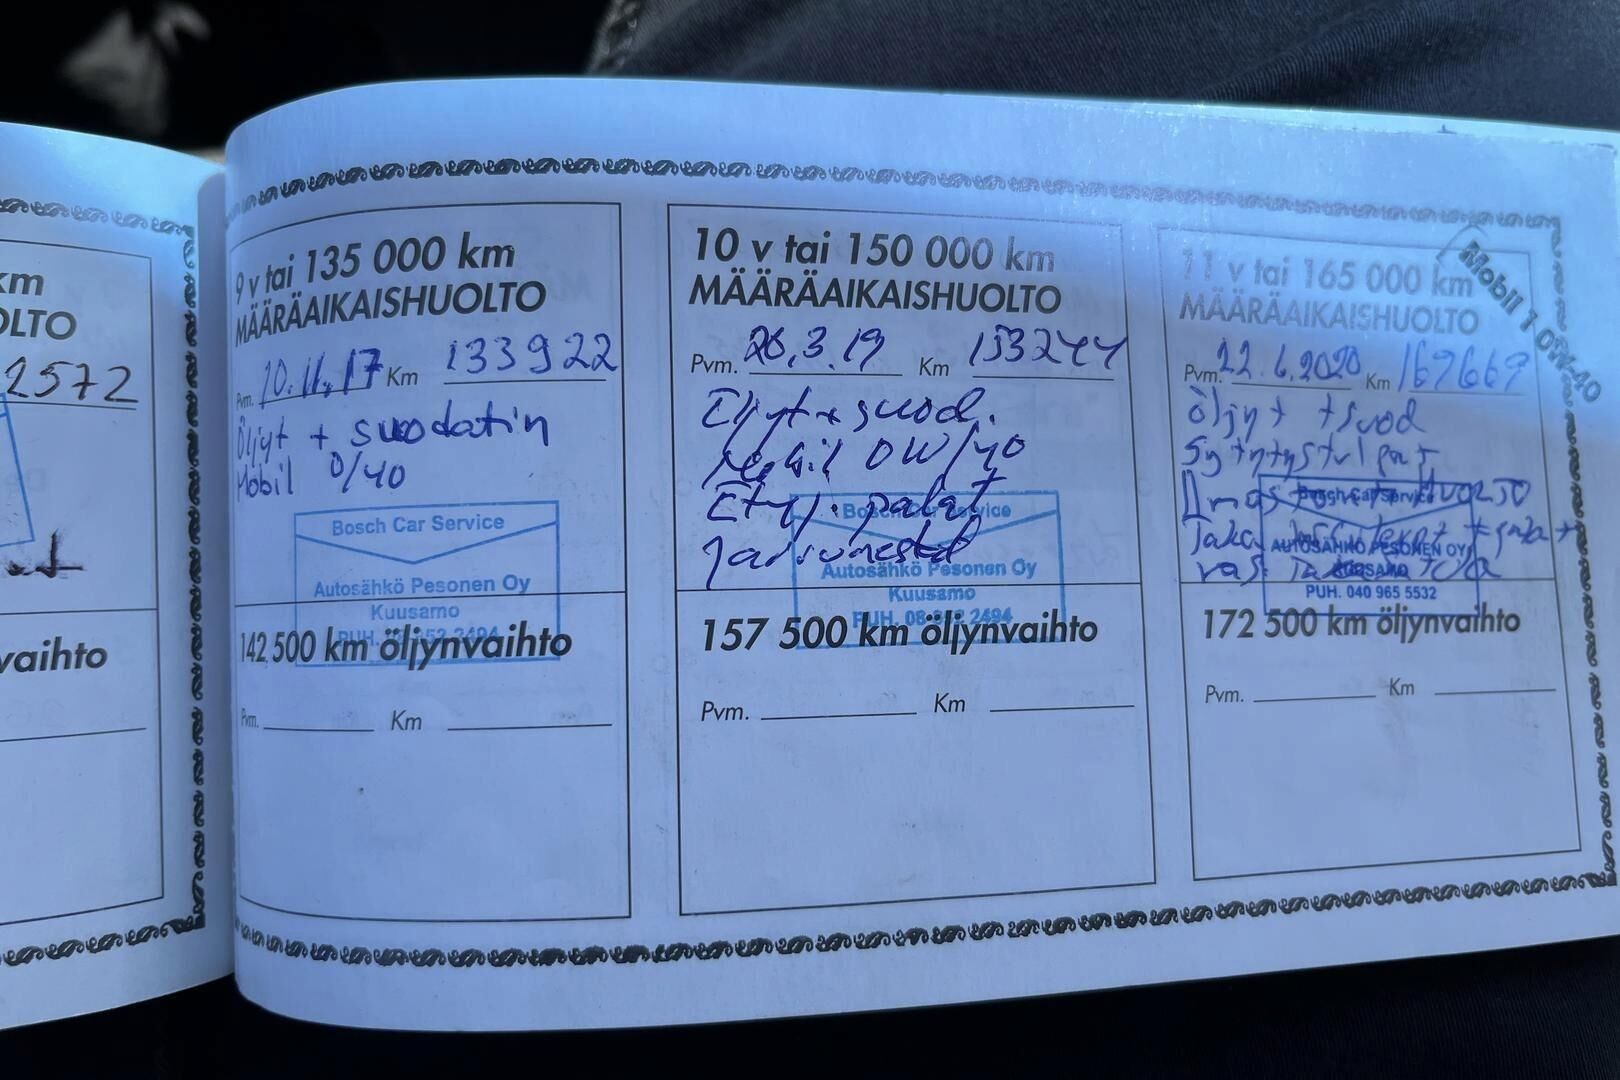 km
OLTO
2572
vaihto
9 v tai 135 000 km
MÄÄRÄAIKAISHUOLTO
Pvm. 10.11.17 Km 133922
Öljyt + suodatin
Mobil 0/40
Bosch Car Service
Autosähkö Pesonen Oy
Kuusamo
PUH.
142 500 km öljynvaihto
Pvm. Km
10 v tai 150 000 km
MÄÄRÄAIKAISHUOLTO
Pvm. 26.3.19 Km 153244
Öljyt + suod.
Mobil 0W/40
Etuj. palat
Jarrunestd
Bosch Car Service
Autosähkö Pesonen Oy
Kuusamo
PUH. 08-852 2494
157 500 km öljynvaihto
Pvm. Km
11 v tai 165 000 km
MÄÄRÄAIKAISHUOLTO
Mobil 1 0W-40
Pvm. 22.6.2020 Km 167669
Öljyt + suod
Sytytystulpat
Bosch Car Service
AUTOSÄHKÖ PESONEN OY
KUUSAMO
PUH. 040 965 5532
172 500 km öljynvaihto
Pvm. Km